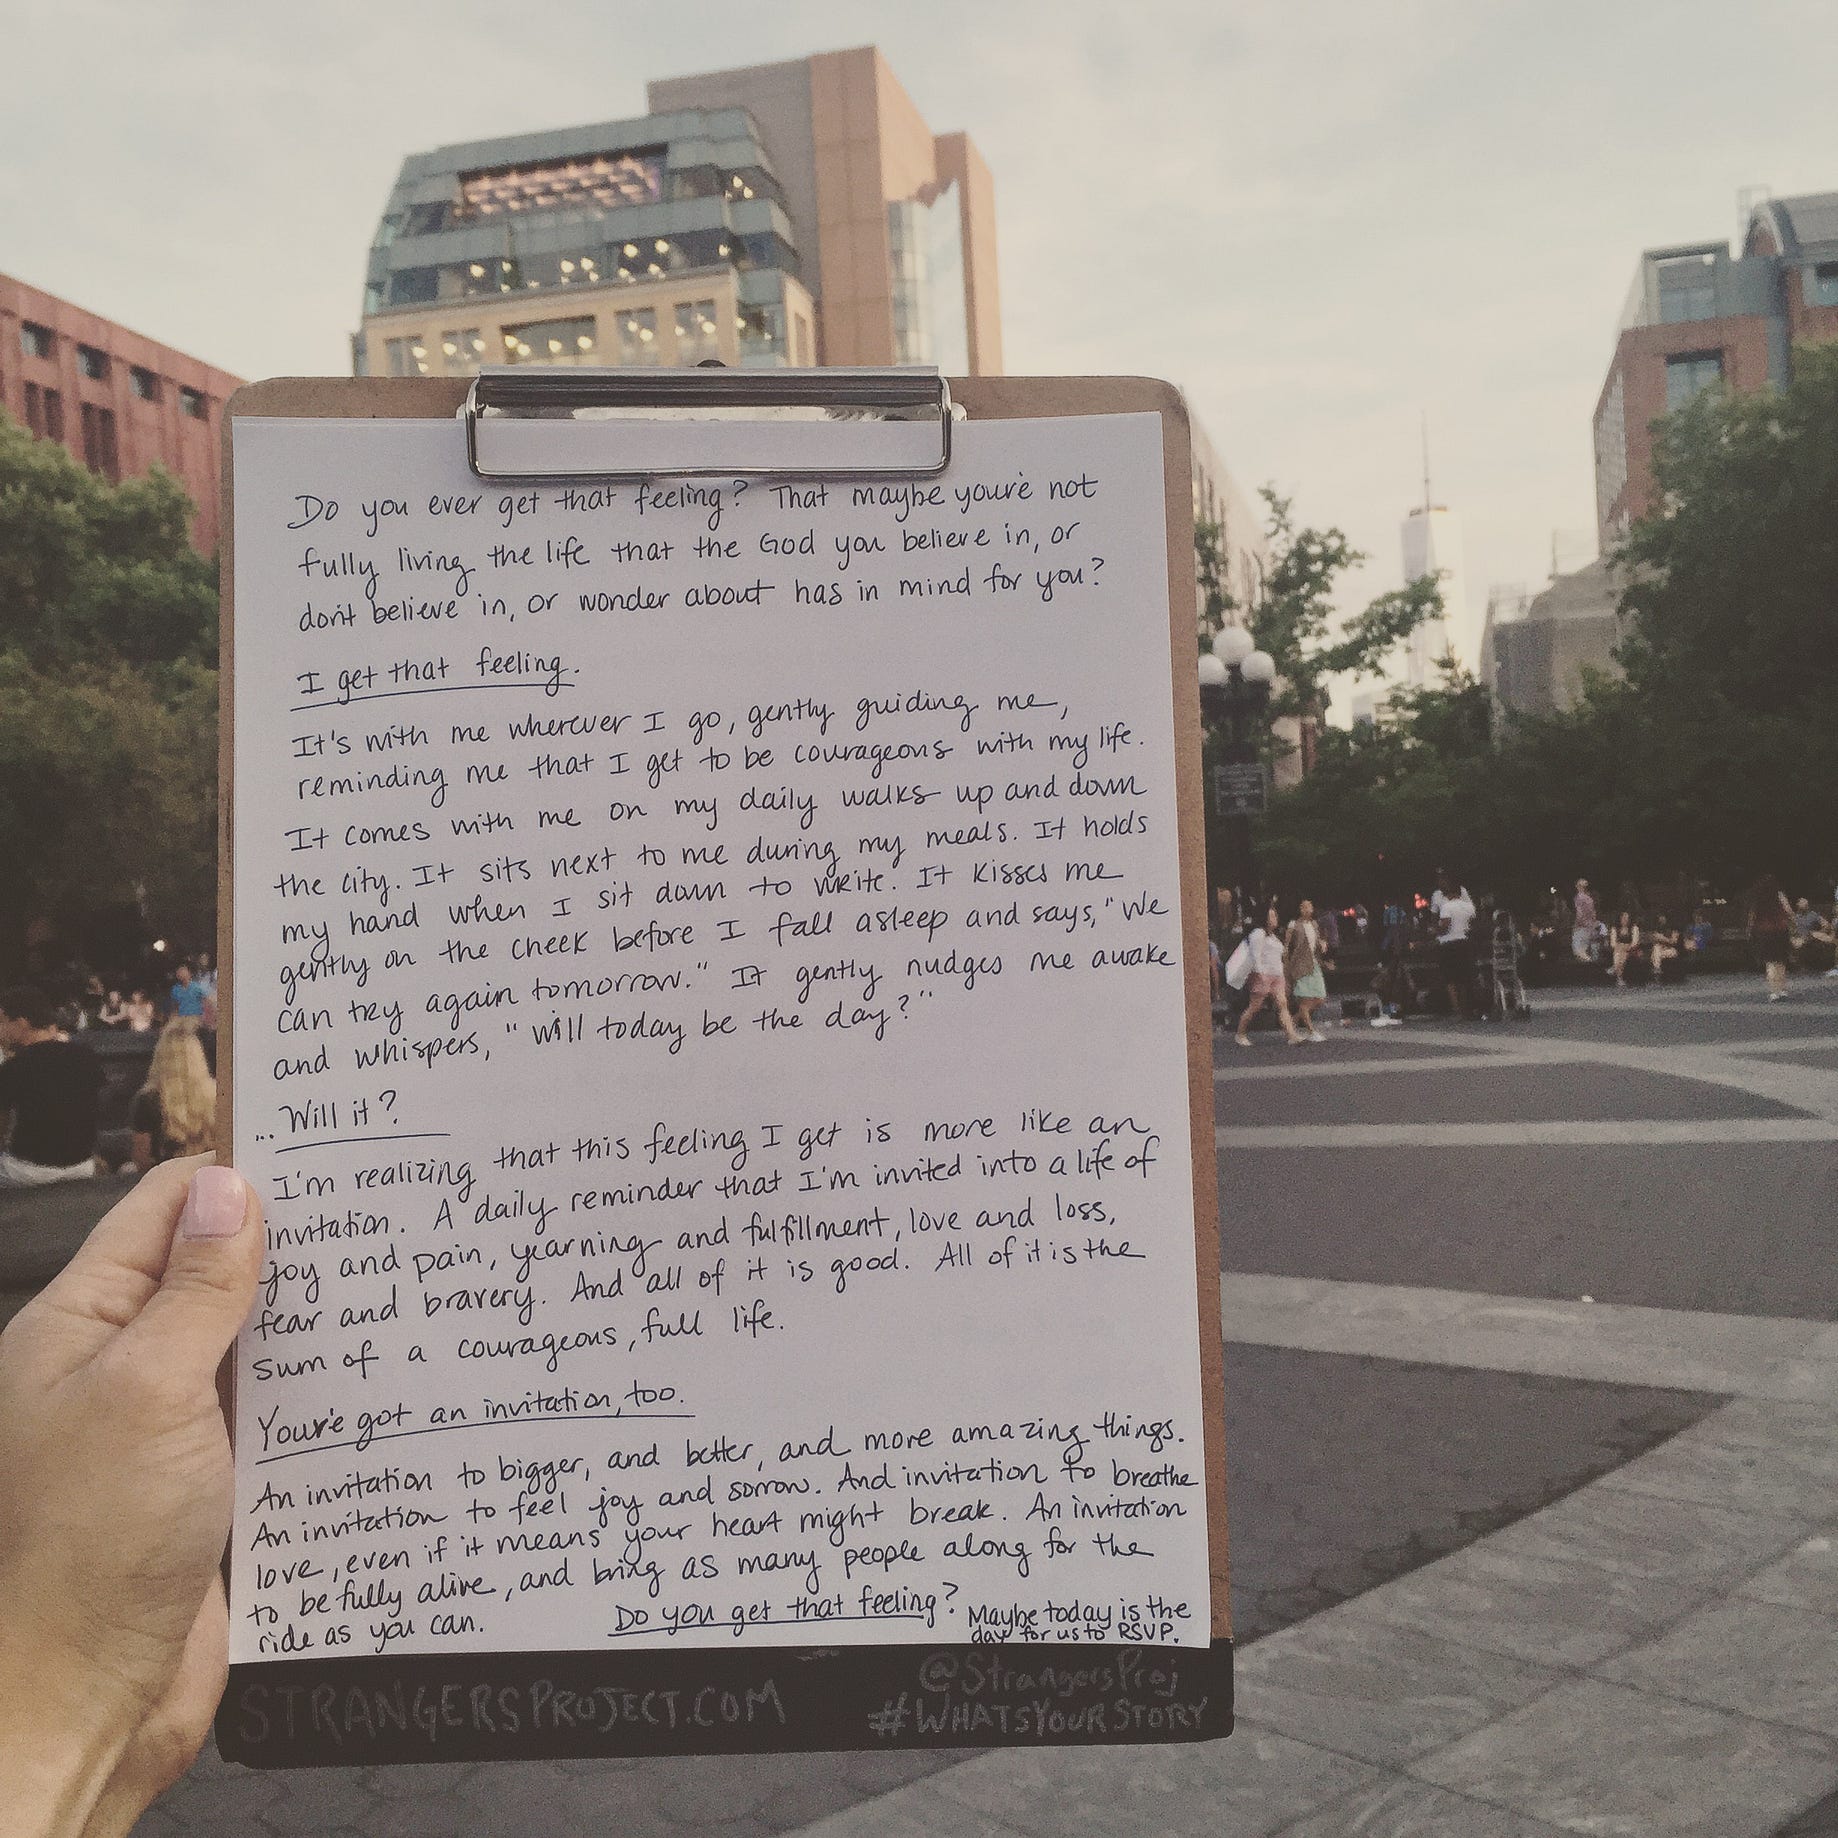 Do you ever get that feeling? That maybe you're not
fully living the life that the God you believe in, or
don't believe in, or wonder about has in mind for you?
I get that feeling.
It's with me wherever I go, gently guiding me,
reminding me that I get to be courageous with my life.
It comes with me on my daily walks up and down
the city. It sits next to me during my meals. It holds
my hand when I sit down to write. It kisses me
gently on the cheek before I fall asleep and says, "We
can try again tomorrow." It gently nudges me awake
and whispers, "Will today be the day?"
... Will it?
I'm realizing that this feeling I get is more like an
invitation. A daily reminder that I'm invited into a life of
joy and pain, yearning and fulfillment, love and loss,
fear and bravery. And all of it is good. All of it is the
sum of a courageous, full life.
You've got an invitation, too.
An invitation to bigger, and better, and more amazing things.
An invitation to feel joy and sorrow. And invitation to breathe
love, even if it means your heart might break. An invitation
to be fully alive, and bring as many people along for the
ride as you can. Do you get that feeling? Maybe today is the
day for us to RSVP.
STRANGERSPROJECT.COM
@StrangersProj
#WHATSYOURSTORY